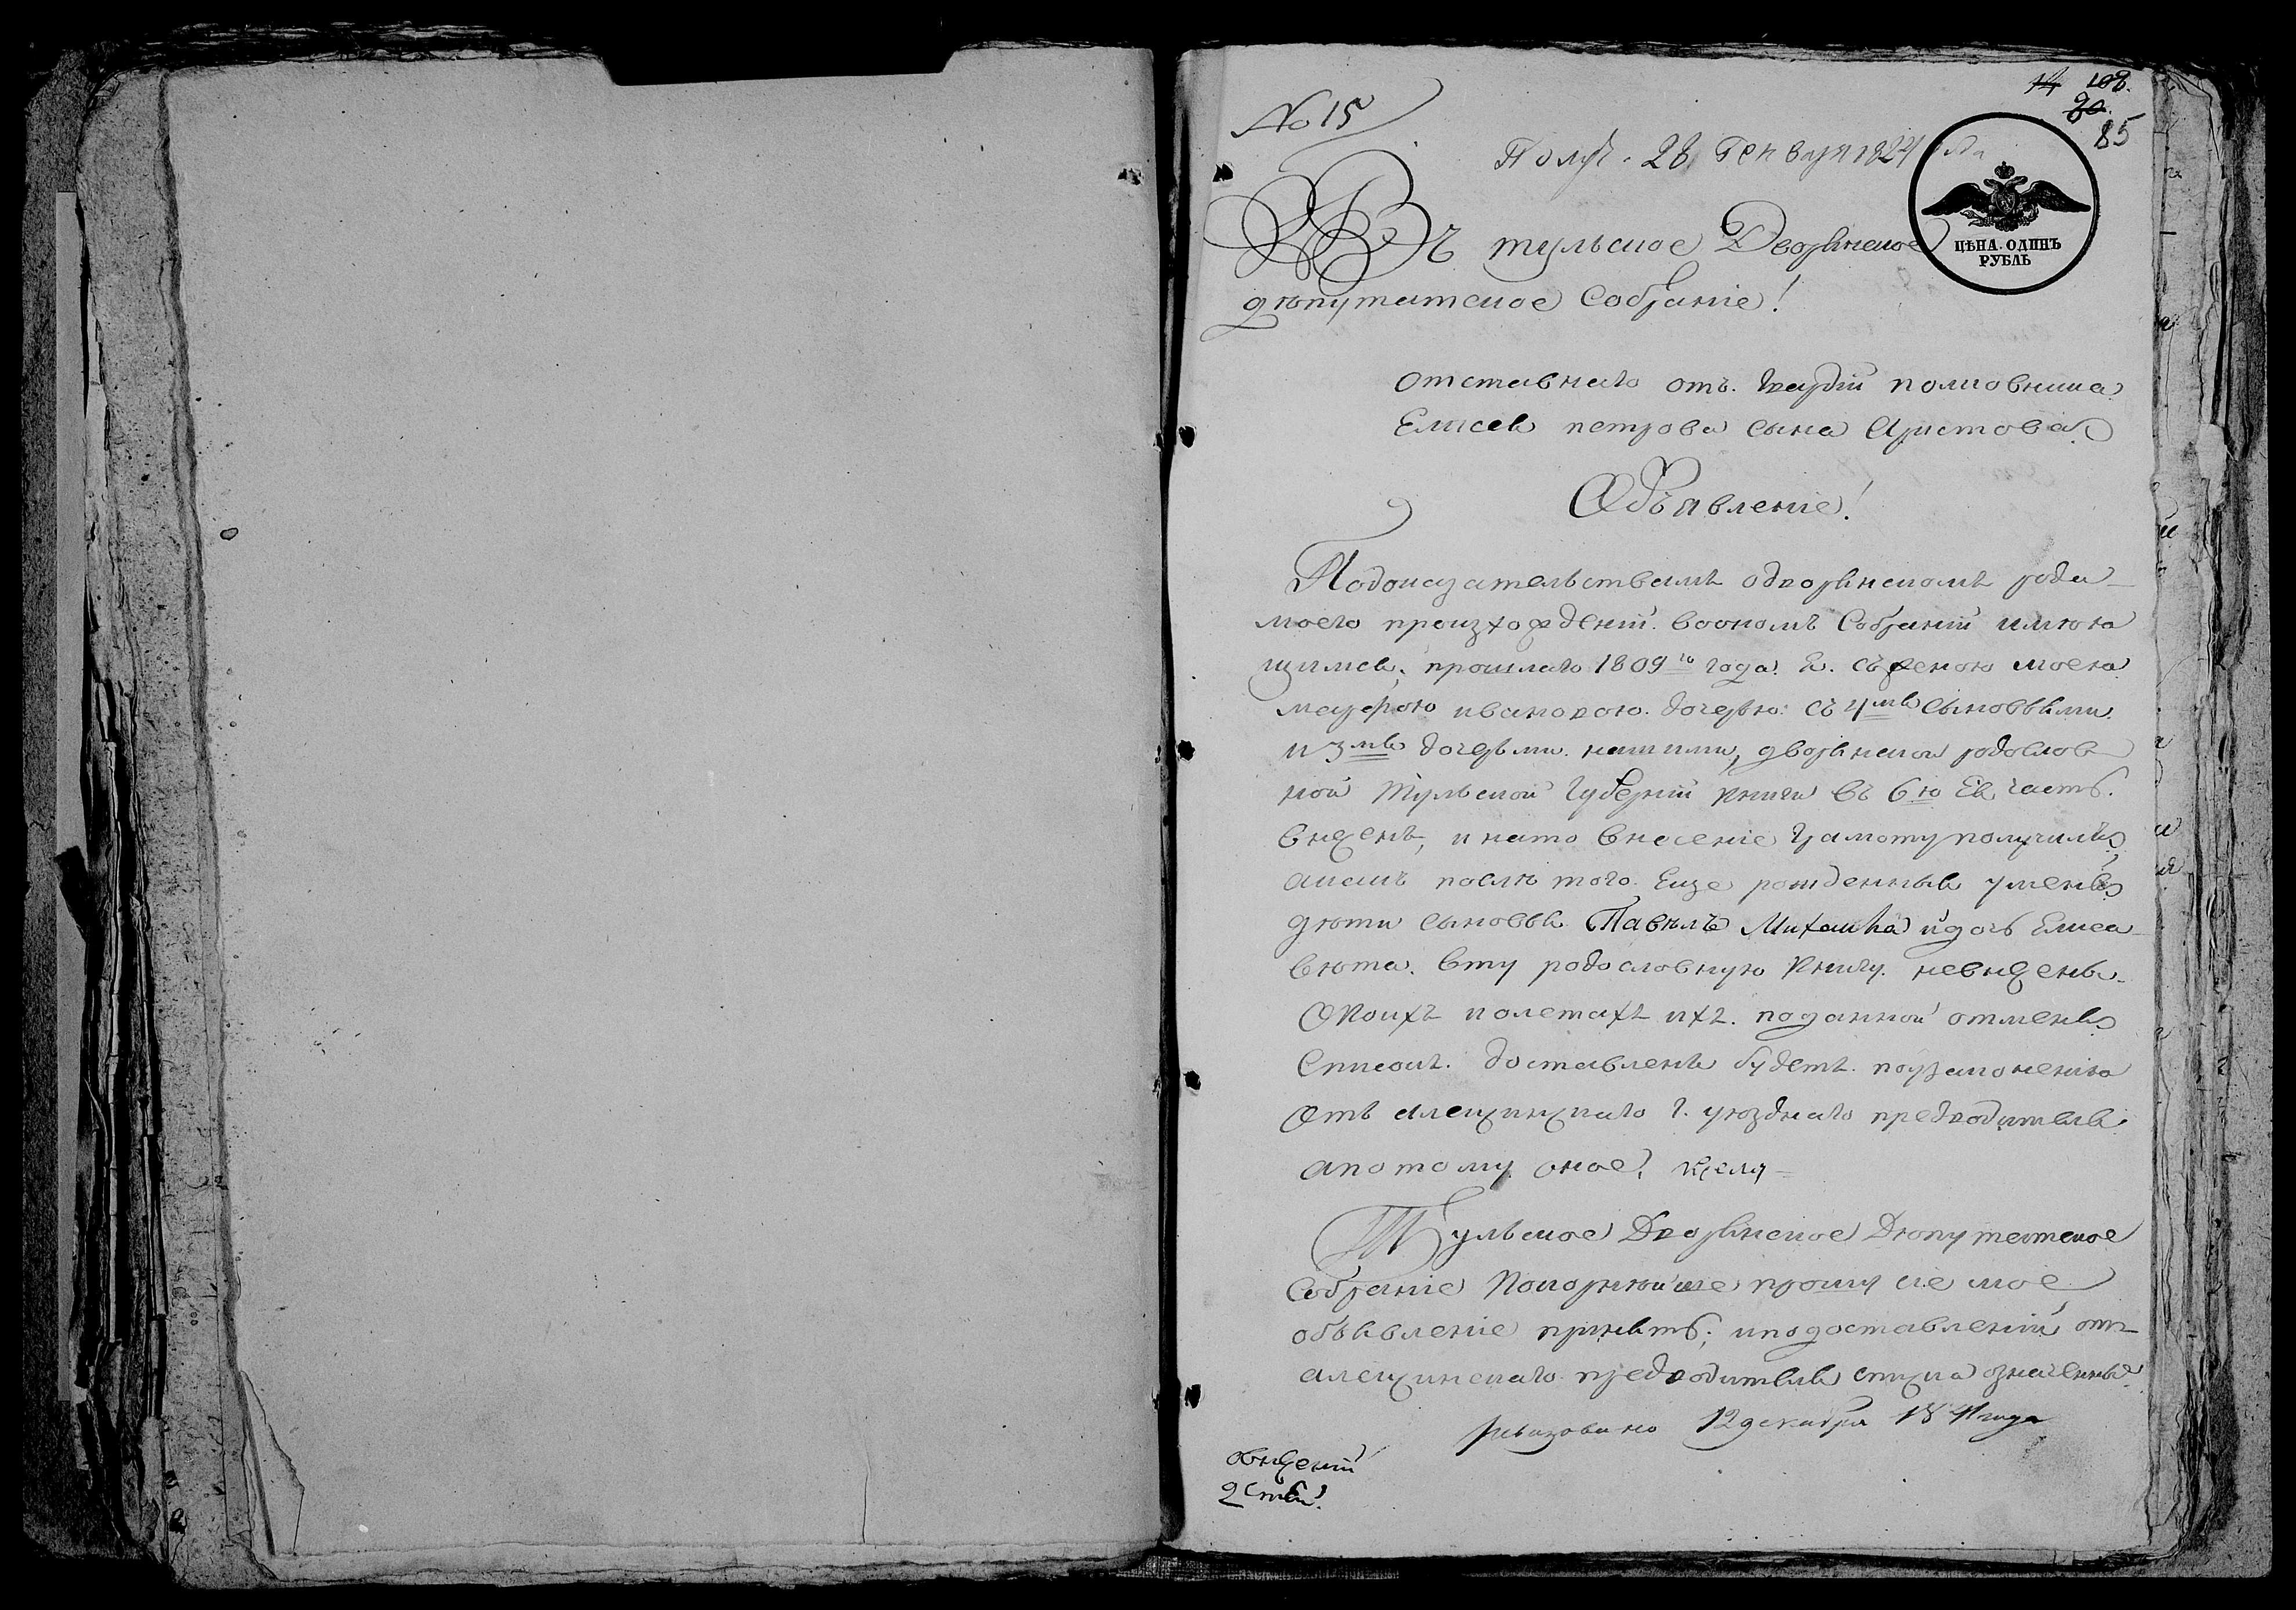 14 108.
80.
85
№ 15
Получ. 28 Генваря 1824
ЦѢНА ОДИНЪ
РУБЛЬ
Въ тульское Дворянское
дѣпутатское Собраніе!
отставнаго отъ гвардіи полковника
Елисея петрова сына Аристова
Объявленіе!
По доказательствамъ о дворянскомъ рода
моего произхожденіи. во ономъ Собраніи имѣю
щимся, прошлаго 1809го года. Я. съ женою моею
ивановою дочерью. съ 4мя сыновьями
и 3мя дочерьми нашими, дворянской родослов
ной Тульской Губерніи книги въ 6ю Ея часть.
внесенъ, и на то внесеніе грамоту получилъ
а какъ послѣ того Еще рожденныя у меня
дѣти сыновья Павелъ Михаила и дочь Елиса
вѣта. в ту родословную книгу. не внесены
О коихъ и о летахъ ихъ. поданной отменя
Списокъ. доставленъ будетъ.
Отъ алексинскаго г. уѣзднаго предводителя
а потому оное,
Тульское Дворянское Дѣпутатское
Собраніе Покорнѣйше прошу сіе мое
объявленіе принять; и по доставленіи отъ
алексинскаго предводителя списка означенныя
ревизовано 12 декабря 1841 года
о внесеніи